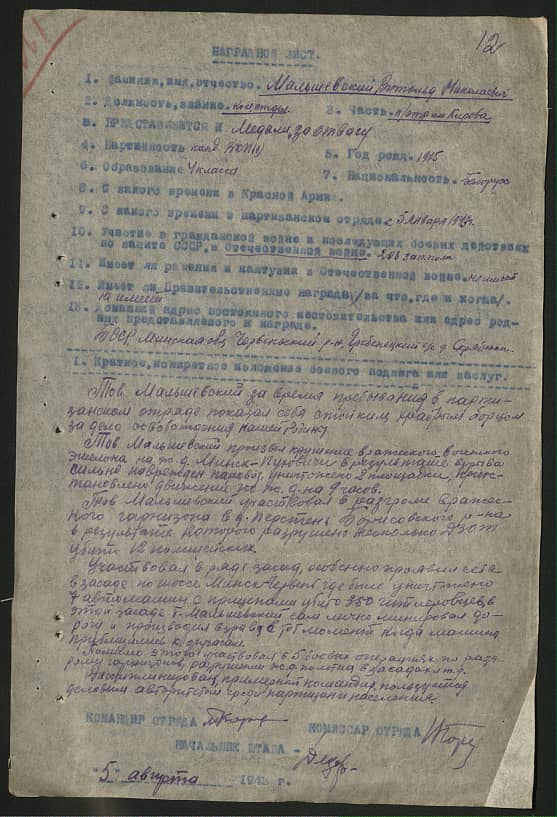 12
НАГРАДНОЙ ЛИСТ.
1. Фамилия, имя, отчество. Малышевский, Витольд Николаевич
2. Должность, звание. 3. Часть. п/отр им. Кирова
3. ПРЕДСТАВЛЯЕТСЯ К Медали, за отвагу
4. Партийность канд. ВКП(б) 5. Год рожд. 1915
6. Образование 4 класса 7. Национальность. белорус
8. С какого времени в Красной Армии.
9. С какого времени в партизанском отряде с 5 января 1942 г.
10. Участие в гражданской войне и последующих боевых действиях
по защите СССР, в Отечественной войне. 208 зап полк
11. Имеет ли ранения и контузии в Отечественной войне. не имеет
12. Имеет ли Правительственные награды /за что, где и когда/.
не имеет
13. Домашний адрес постоянного местожительства или адрес род-
ных представляемого к награде.
БССР Минская обл. Червеньский р-н, Гребенецкий с/с д.
1. Краткое, конкретное изложение боевого подвига или заслуг.
Тов. Малышевский за время пребывания в парти-
занском отряде показал себя стойким храбрым борцом
за дело освобождения нашей Родины.
Тов Малышевский произвел крушение вражеского военного
эшелона на ж.д. Минск-Пуховичи в результате взрыва
сильно поврежден паровоз, уничтожено 2 площадки, приос-
тановлено движение по ж.д. на 9 часов.
Тов Малышевский участвовал в разгроме вражес-
кого гарнизона в д. Перстень Борисовского р-на
в результате которого разрушено несколько ДЗОТ
убито 12 полицейских.
Участвовал в ряде засад, особенно проявил себя
в засаде по шоссе Минск-Червень где было уничтожено
7 автомашин с прицепами убито 350 гитлеровцев, в
этой засаде т. Малышевский сам лично минировал до-
рогу и производил взрыв в тот момент когда машины
приблизились к
Помимо этого участвовал в 5 боевых операциях по разг-
рому гарнизонов, разрушении ж.д. полотна, в засадах и т.д.
Дисциплинирован, примерный командир, пользуется
деловым авторитетом среди партизан и населения.
КОМАНДИР ОТРЯДА КОМИССАР ОТРЯДА
НАЧАЛЬНИК ШТАБА -
"5" августа 1943 г.